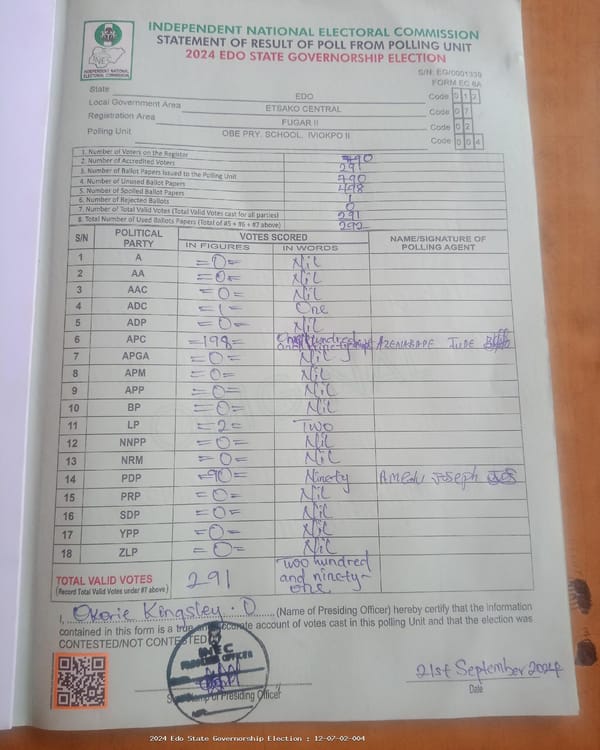 INDEPENDENT NATIONAL ELECTORAL COMMISSION
STATEMENT OF RESULT OF POLL FROM POLLING UNIT
2024 EDO STATE GOVERNORSHIP ELECTION
INDEPENDENT NATIONAL ELECTORAL COMMISSION
S/N: EG/0001339
FORM EC 8A
State EDO Code 0 1 2
Local Government Area ETSAKO CENTRAL Code 0 7
Registration Area FUGAR II Code 0 2
Polling Unit OBE PRY. SCHOOL, IVIOKPO II Code 0 0 4
1. Number of Voters on the Register 790
2. Number of Accredited Voters 291
3. Number of Ballot Papers Issued to the Polling Unit 790
4. Number of Unused Ballot Papers 498
5. Number of Spoiled Ballot Papers 1
6. Number of Rejected Ballots 0
7. Number of Total Valid Votes (Total Valid Votes cast for all parties) 291
8. Total Number of Used Ballots Papers (Total of #5 + #6 + #7 above) 292
S/N POLITICAL PARTY VOTES SCORED NAME/SIGNATURE OF POLLING AGENT
IN FIGURES IN WORDS
1 A =0= Nil
2 AA =0= Nil
3 AAC =0= Nil
4 ADC =1= One
5 ADP =0= Nil
6 APC =198= One hundred JUDE
7 APGA =0= Nil
8 APM =0= Nil
9 APP =0= Nil
10 BP =0= Nil
11 LP =2= Two
12 NNPP =0= Nil
13 NRM =0= Nil
14 PDP =90= Ninety Joseph
15 PRP =0= Nil
16 SDP =0= Nil
17 YPP =0= Nil
18 ZLP =0= Nil
TOTAL VALID VOTES 291 Two hundred and ninety-one
(Record Total Valid Votes under #7 above)
I, Okorie Kingsley . O (Name of Presiding Officer) hereby certify that the information
contained in this form is a true accurate account of votes cast in this polling Unit and that the election was
CONTESTED/NOT CONTESTED
INEC
PRESIDING OFFICER
21st September 2024
of Presiding Officer Date
2024 Edo State Governorship Election : 12-07-02-004